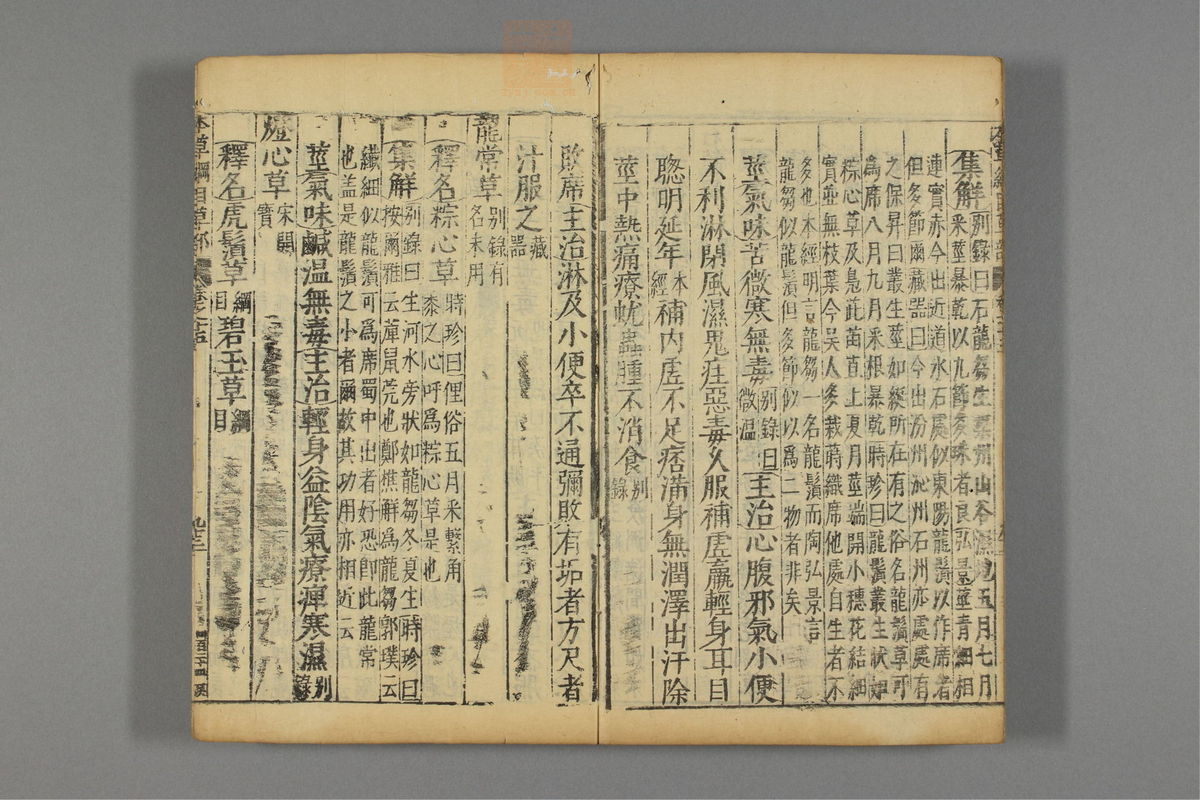 集解别錄曰石龍芻生梁州山谷濕地五月七月
采莖暴乾以九節多味者良弘景曰莖青細相
連實赤今出近道水石處似東陽龍鬚以作席者
但多節爾藏器曰今出汾州沁州石州亦處處有
之保昇曰叢生莖如綖所在有之俗名龍鬚草可
為席八月九月采根暴乾時珍曰龍鬚叢生狀如
粽心草及鳧茈苗直上夏月莖端開小穗花結細
實並無枝葉今吳人多栽蒔織席他處自生者不
多也本經明言龍芻一名龍鬚而陶弘景言
龍芻似龍鬚但多節似以為二物者非矣
莖氣味苦微寒無毒别錄曰微温主治心腹邪氣小便
不利淋閉風濕鬼疰惡毒久服補虛羸輕身耳目
聰明延年本經補内虛不足痞滿身無潤澤出汗除
莖中熱痛療蚘蟲腫不消食别錄
敗席主治淋及小便卒不通彌敗有垢者方尺煮
汁服之藏器
龍常草别錄有名未用
釋名粽心草時珍曰俚俗五月采繫角
黍之心呼為粽心草是也
集解别錄曰生河水旁狀如龍芻冬夏生時珍曰
按爾雅云萆鼠莞也鄭樵解為龍芻郭璞云
纎細似龍鬚可為席蜀中出者好恐即此龍常
也盖是龍鬚之小者爾故其功用亦相近云
莖氣味鹹温無毒主治輕身益陰氣療痺寒濕别錄
燈心草宋開寶
釋名虎鬚草綱目碧玉草綱目
本草綱目草部